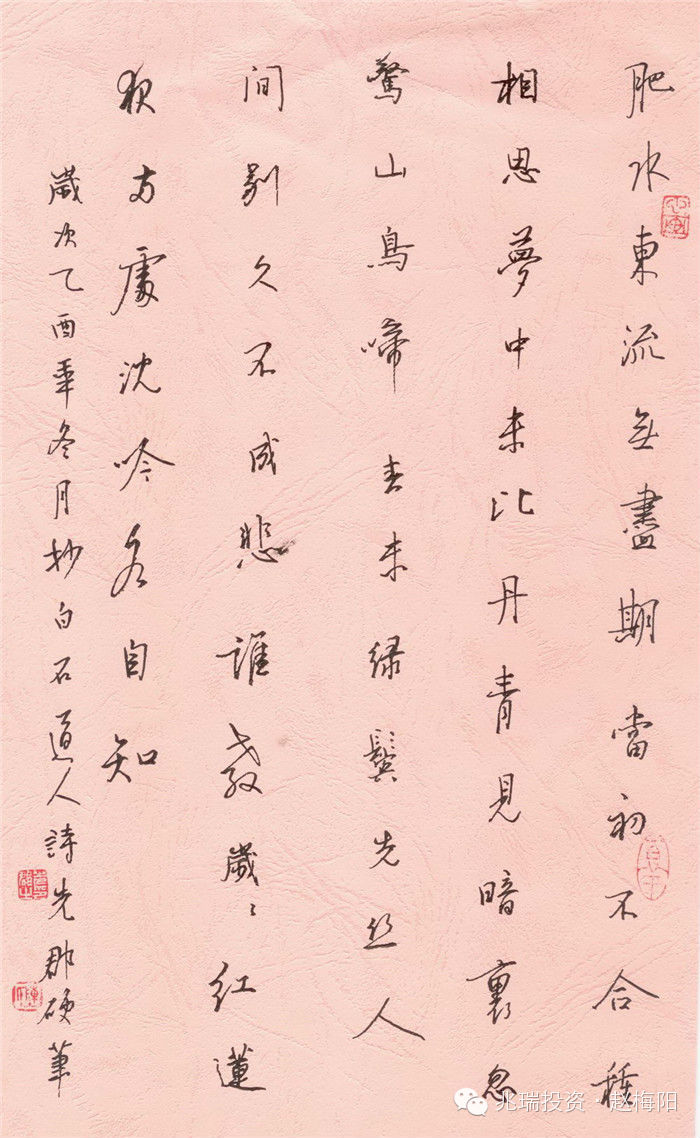 肥水東流無盡期當初不合種
相思夢中未比丹青見暗裏忽
驚山鳥啼春未緑鬢先丝人
間别久不成悲誰教歲〻紅蓮
夜兩處沈吟各自知
歲次乙酉年冬月抄白石道人詩先郡硬筆
兆瑞投资·赵梅阳